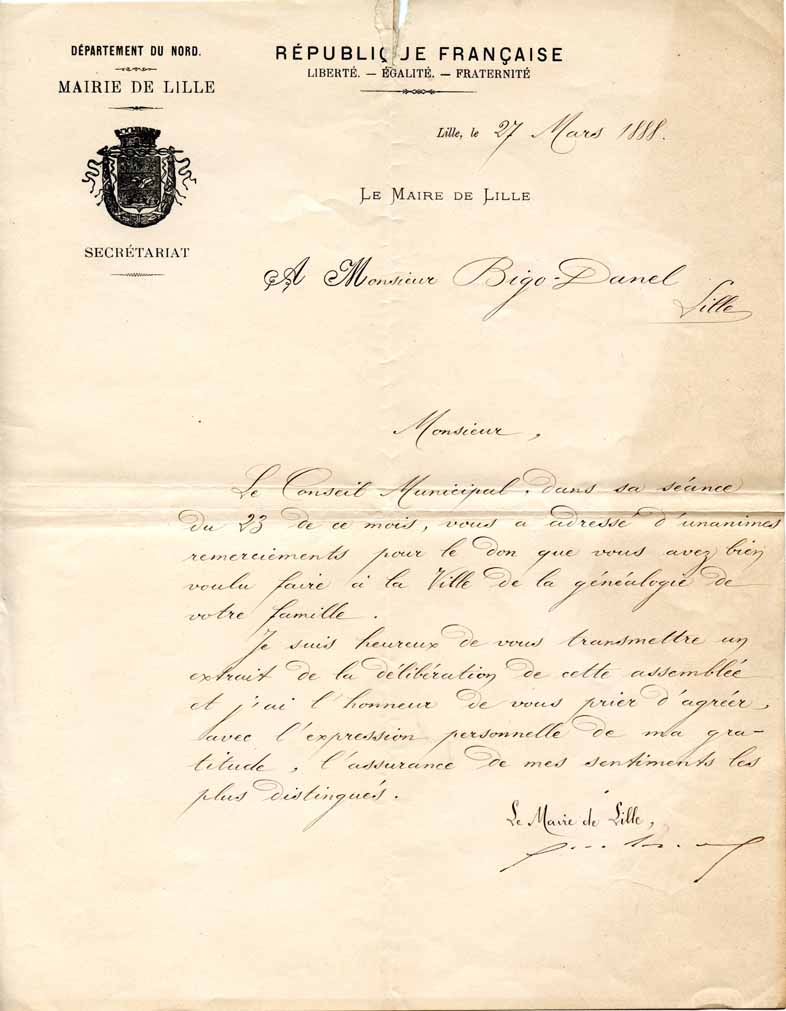 DÉPARTEMENT DU NORD.
MAIRIE DE LILLE
SECRÉTARIAT
RÉPUBLIQUE FRANÇAISE
LIBERTÉ. — ÉGALITÉ. — FRATERNITÉ
Lille, le 27 Mars 1888.
LE MAIRE DE LILLE
A Monsieur Bigo-Danel
Lille
Monsieur,
Le Conseil Municipal, dans sa séance
du 23 de ce mois, vous a adressé d'unanimes
remerciements pour le don que vous avez bien
voulu faire à la Ville de la généalogie de
votre famille.
Je suis heureux de vous transmettre un
extrait de la délibération de cette assemblée
et j'ai l'honneur de vous prier d'agréer,
avec l'expression personnelle de ma gra-
titude, l'assurance de mes sentiments les
plus distingués.
Le Maire de Lille,